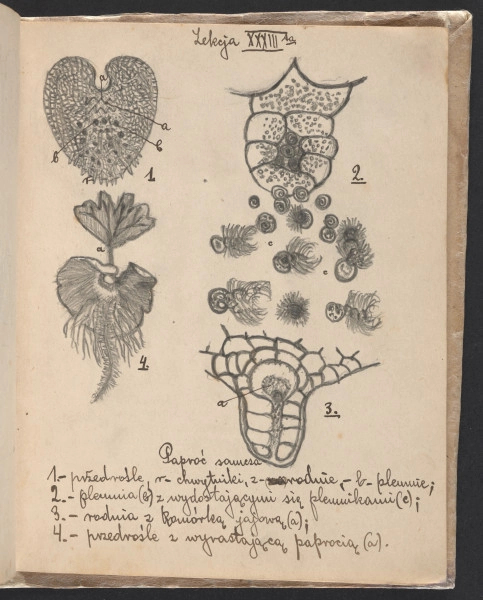 Lekcja XXXIII
a
a
b
b
1.
2.
a
c
c
4.
a
3.
Paproć samcza
1.- przedrośle, r- chwytniki, z- rodnie, - b- plemnie;
2.- plemnia (b) z wydostającymi się plemnikami (c);
3.- rodnia z komórką jajową (a);
4.- przedrośle z wyrastającą paprocią (a).